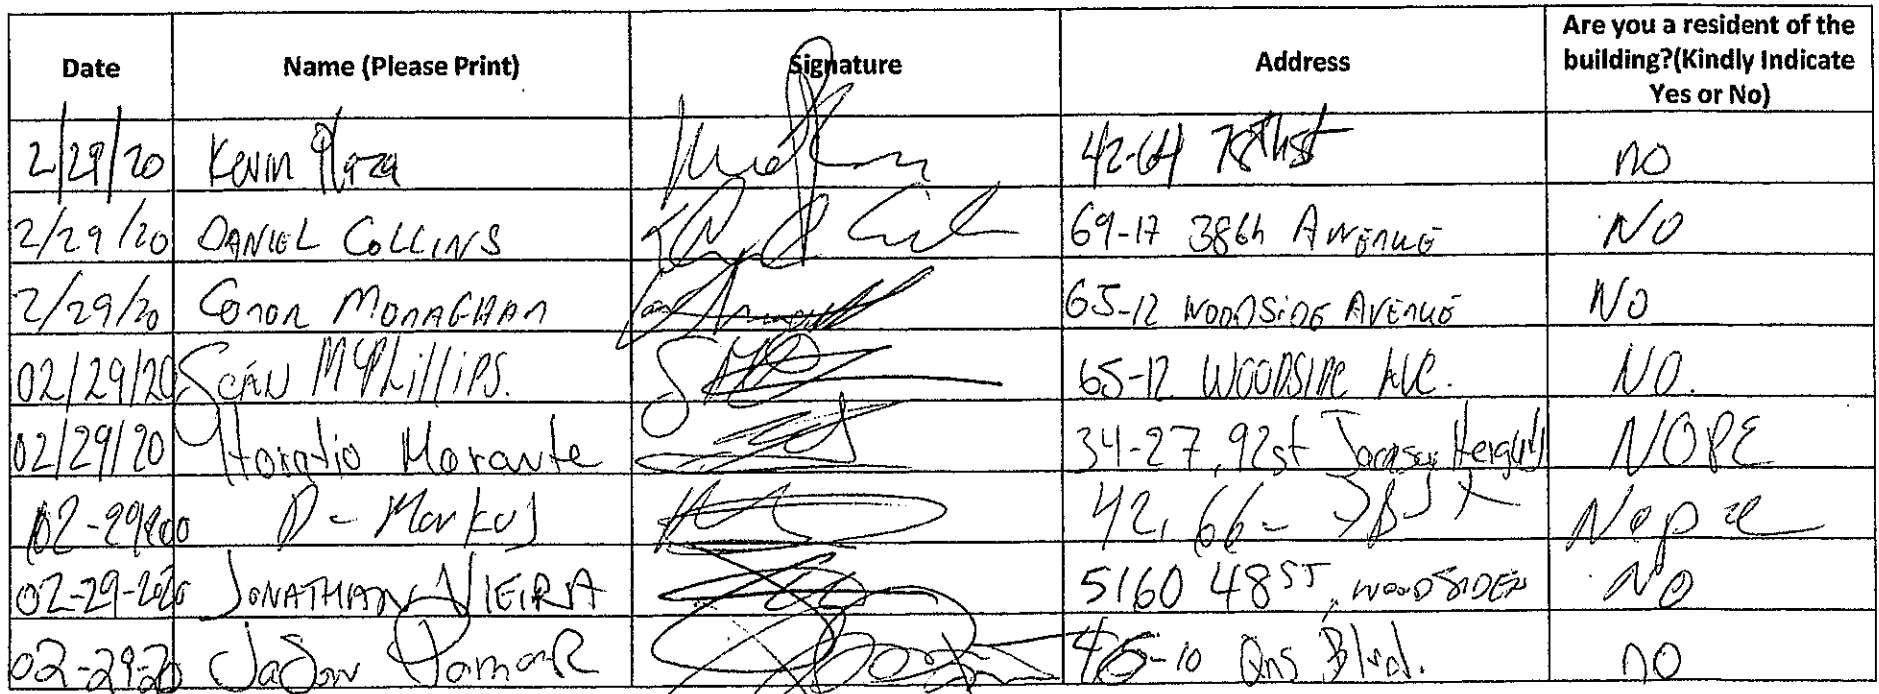 Date Name (Please Print) Signature Address Are you a resident of the building?(Kindly Indicate Yes or No)
2/29/20 Kevin Plaza 42-64 78th st no
2/29/20 DANIEL COLLINS 69-17 38th AVENUE NO
2/29/20 CONOR MONAGHAN 65-12 WOODSIDE AVENUE NO
02/29/20 SEÁN MCPhilliPS. 65-12 WOODSIDE AVE. NO.
02/29/20 Horatio Morante 34-27, 92st Heights NOPE
02-29 D- Markus 42, 66- Nope
02-29-2020 JONATHAN VIEIRA 5160 48 ST, WOODSIDE NO
02-29-20 JaSon -10 Qns Blvd. no